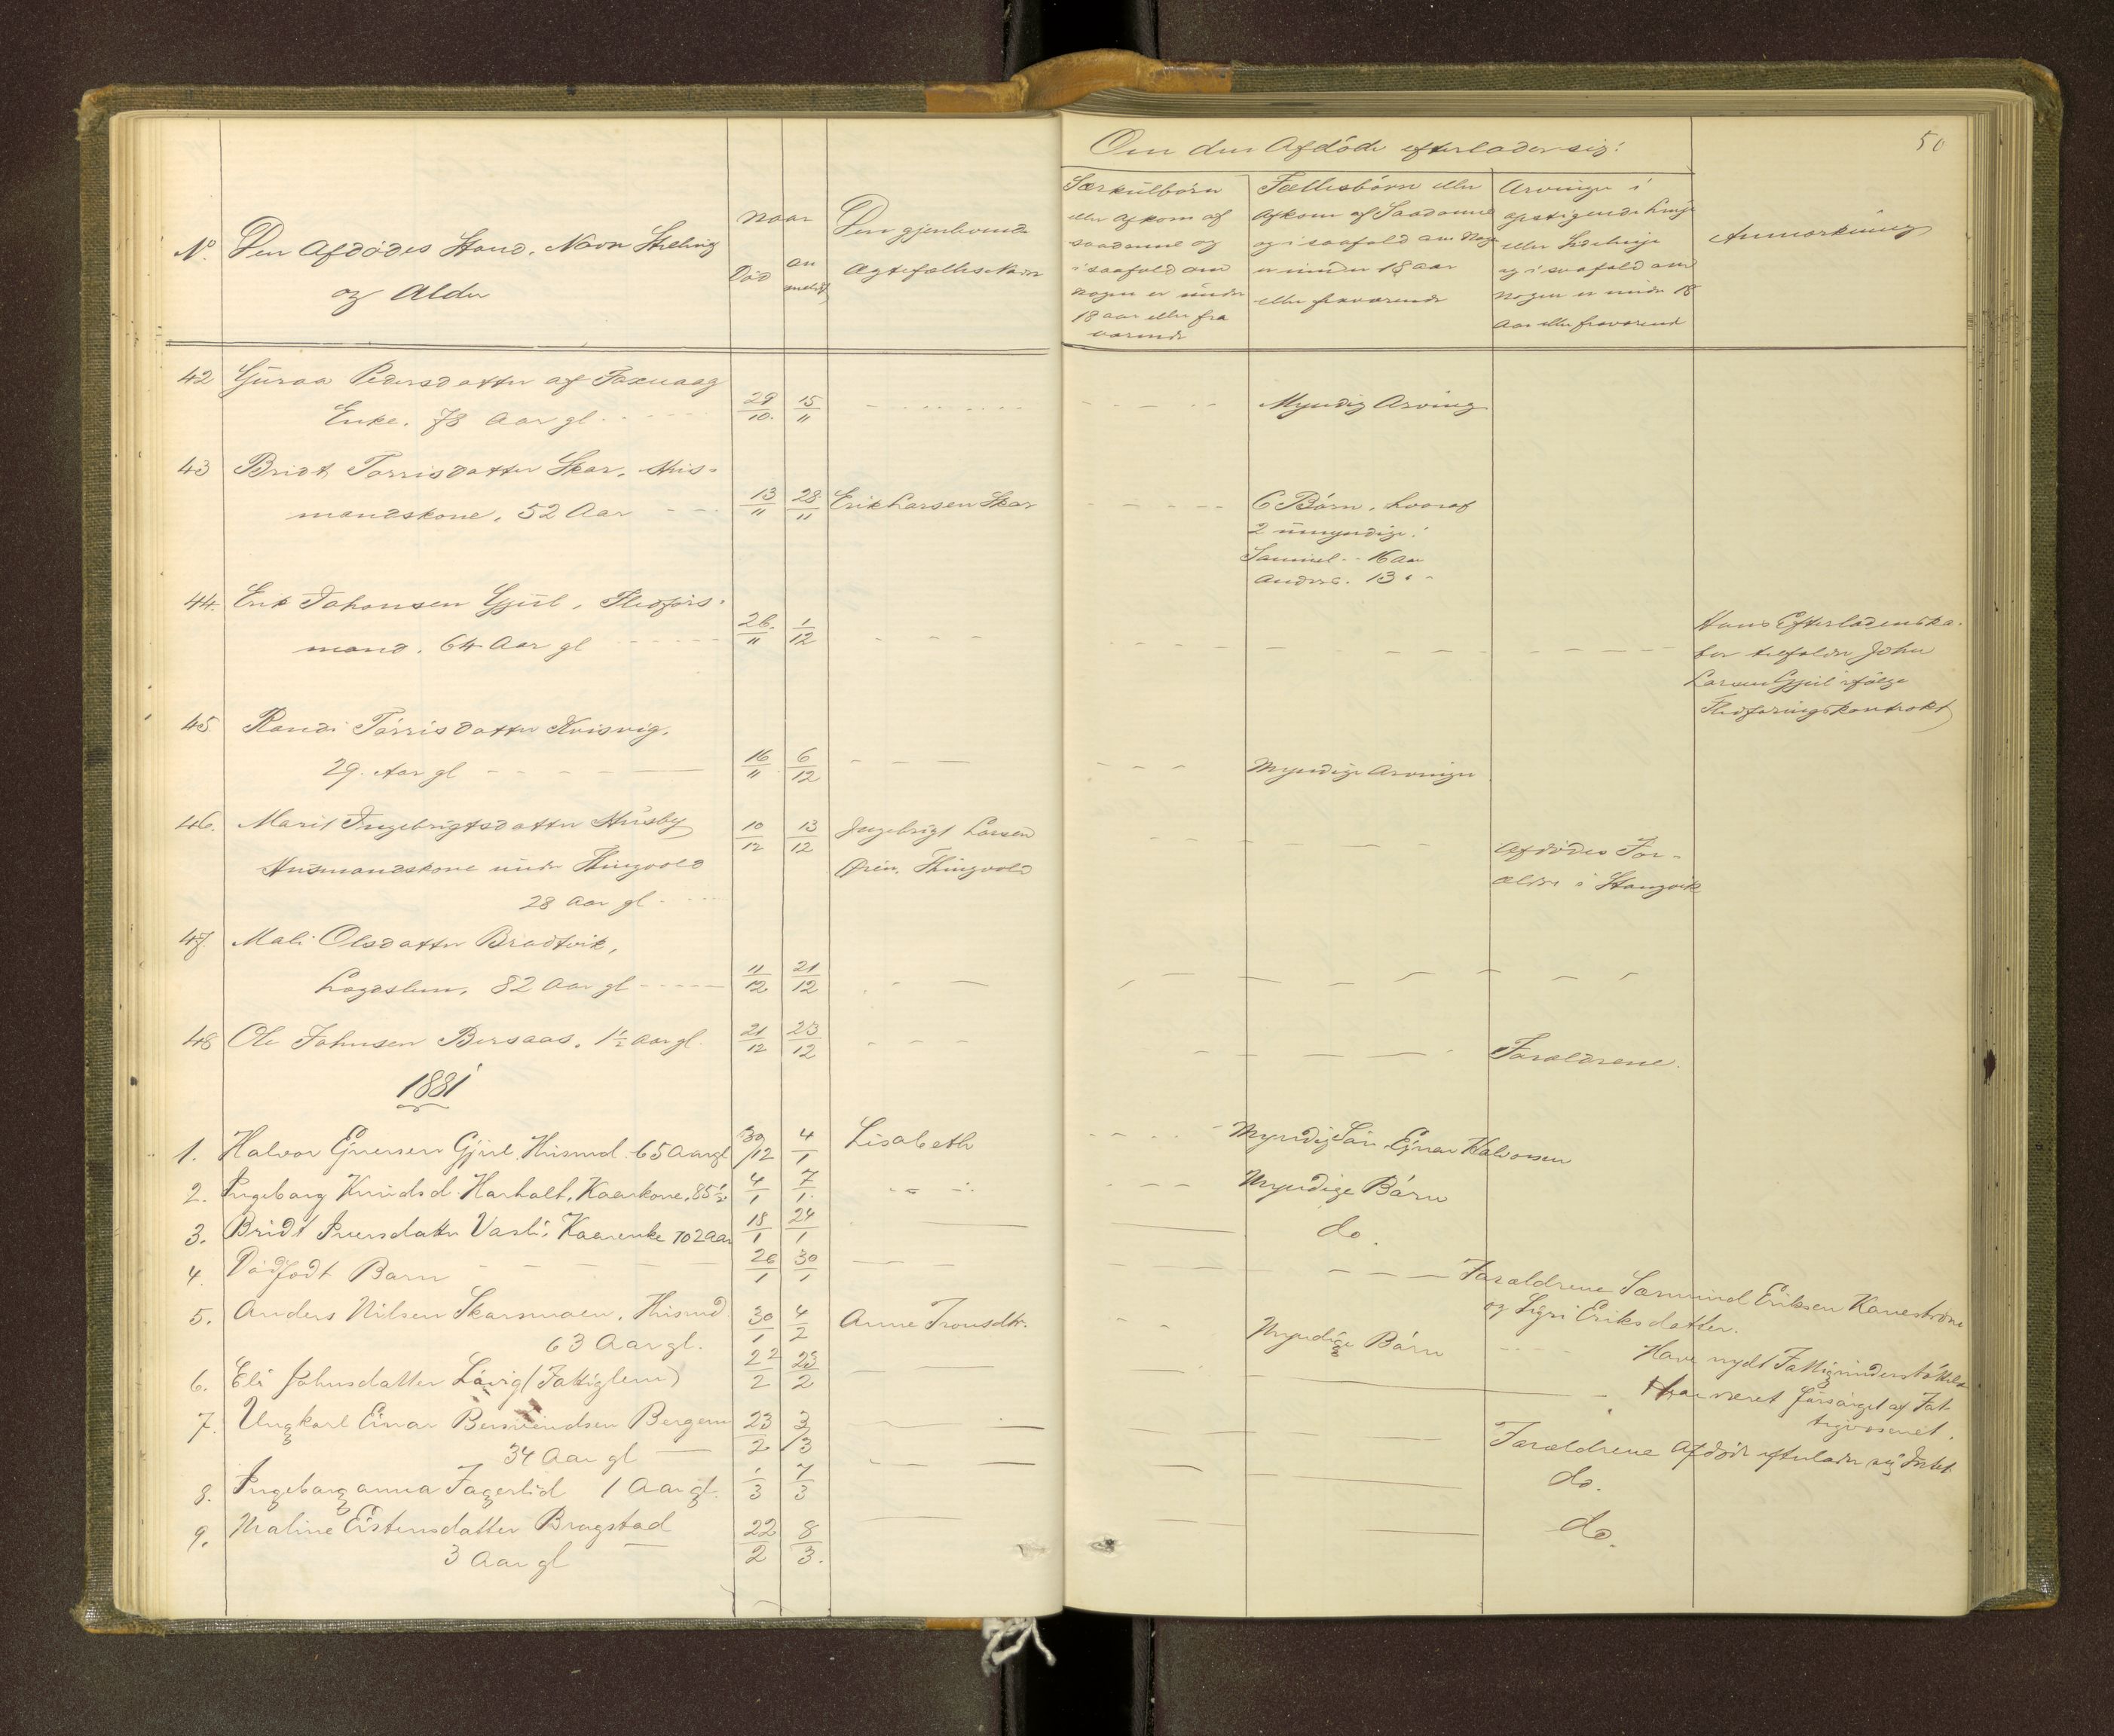 Om den Afdöde efterlader sig:
50
No. Den Afdödes Stand, Navn Stilling
og Alder
naar
Död
an
meldt
Den gjenlevende
Ægtefælles Navn
Særkulbörn
eller Afkom af
saadanne og
i saafald om
nogen er under
18 aar eller fra
værende
Fællesbörn eller
Afkom af Saadanne
og i saafald om Nogen
er under 18 aar
eller fraværende
Arvinger i
opstigende Linje
eller Sidelinje
og i saafald om
nogen er under 18
Aar eller fraværend
Anmærkning
42 Guraa Pedersdatter af Taxvaag
Enke. 78 Aar gl. 29/10. 15/11 Myndig Arving
43 Bridt Torrisdatter Skar, Hus-
mandskone, 52 Aar 13/11 28/11 Erik Larsen Skar 6 Börn, hvoraf
2 umyndige:
Samuel 16 Aar
Anders. 13 "
44. Erik Johansen Gjul, Fledförs-
mand, 64 Aar gl 26/11 1/12 Hans Efterladenska-
ber tilfalder John
Larsen Gjul ifölge
Fledföringskontrakt
45 Randi Torrisdatter Kvisvig,
29. Aar gl 16/11 6/12 Myndige Arvinger
46. Marit Ingebrigtsdatter Husby 10/12 13/12 Ingebrigt Larsen
Husmandskone under Thingvold Ören, Thingvold Afdödes For-
28 Aar gl ældre i Stangvik
47. Mali Olsdatter Bradtvik,
Lægdslem, 82 Aar gl 11/12 21/12
48 Ole Johnsen Bersaas, 1½ Aar gl. 21/12 23/12 Forældrene.
1881
1. Halvor Gjul, Husmd. 65 Aar gl 30/12 4/1 Lisabeth Myndig Sön, Ejnar Halvorsen
2. Ingeborg Knudsd. Harhalt, Kaarkone, 85½ 4/1 7/1. Myndige Börn
3. Bridt Iversdatter Vasli, Kaarenke 102 Aar 18/1 24/1 do.
4. Dödfödt Barn 26/1 30/1 Forældrene Sæmund Eriksen Kaneström
og Sigri Eriksdatter.
5. Anders Nilsen Skarsmoen, Husmd. 30/1 4/2 Anne Tronsdtr. Myndige Börn Have nydt Fattigunderstöttelse
63 Aar gl.
6. Eli Johnsdatter (Fattiglem) 22/2 23/2 Har været forsörget af Fat-
tigvæsenet.
7. Ungkarl Einar Bergem 23/2 3/3 Forældrene Afdöde efterlader sig Intet
34 Aar gl
8. Ingeborganna Fagerlid 1 Aar gl. 1/3 7/3 do.
9. Maline Eistensdatter Bragstad 22/2 8/3. do.
3 Aar gl